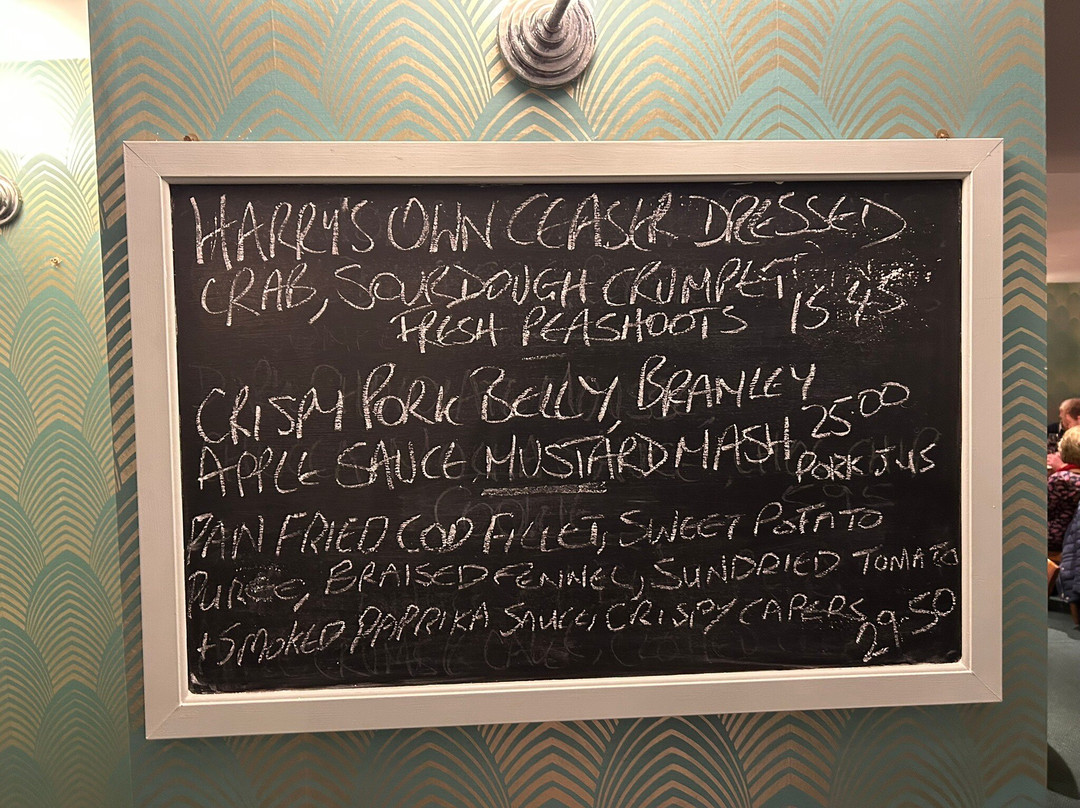 HARRY'S OWN CEASER DRESSED
CRAB, SOURDOUGH CRUMPET
FRESH PEASHOOTS 15.45
CRISPY PORK BELLY, BRAMLEY
APPLE SAUCE MUSTARD MASH 25.00
PORK JUS
PAN FRIED COD FILLET, SWEET POTATO
PUREE, BRAISED FENNEL, SUNDRIED TOMATO
+ SMOKED PAPRIKA SAUCE, CRISPY CAPERS
29.50